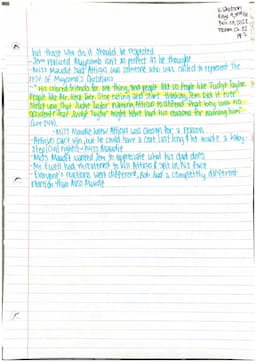 but those who do it should be respected
- Jem realized Maycomb isn't as perfect as he thought
- Miss Maudie said Atticus was someone who was called to represent the
rest of Maycomb's
- "His colored friends for one thing, and people like us. People like Judge Taylor.
People like Mr. Heck Tate. Stop eating and start thinking, Jem. Did it ever
strike you that Judge Taylor naming Atticus to defend that boy was no
accident? That Judge Taylor might have had his reasons for naming him?"
- Miss Maudie knew Atticus was chosen for a reason
- Atticus can't win, but he could have a case last long & it made a baby-
step (in) rights → Miss Maudie
- Miss Maudie wanted Jem to appreciate what his dad does
- Mr. Ewell had threatened to kill Atticus & spit in his face
- Everyone's reactions were different, Bob had a completely different
reaction than Miss Maudie